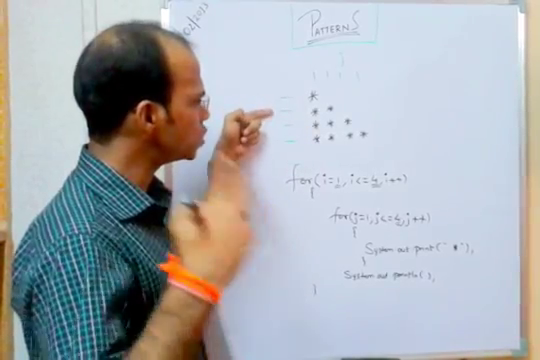 02/2023
PATTERNS
j
1 1 1 1
*
* *
* * *
* * * *
for(i=1,i<=4,i++)
{
for(j=1,j<=4,j++)
{
System out print(" *"),
}
System out println( ),
}